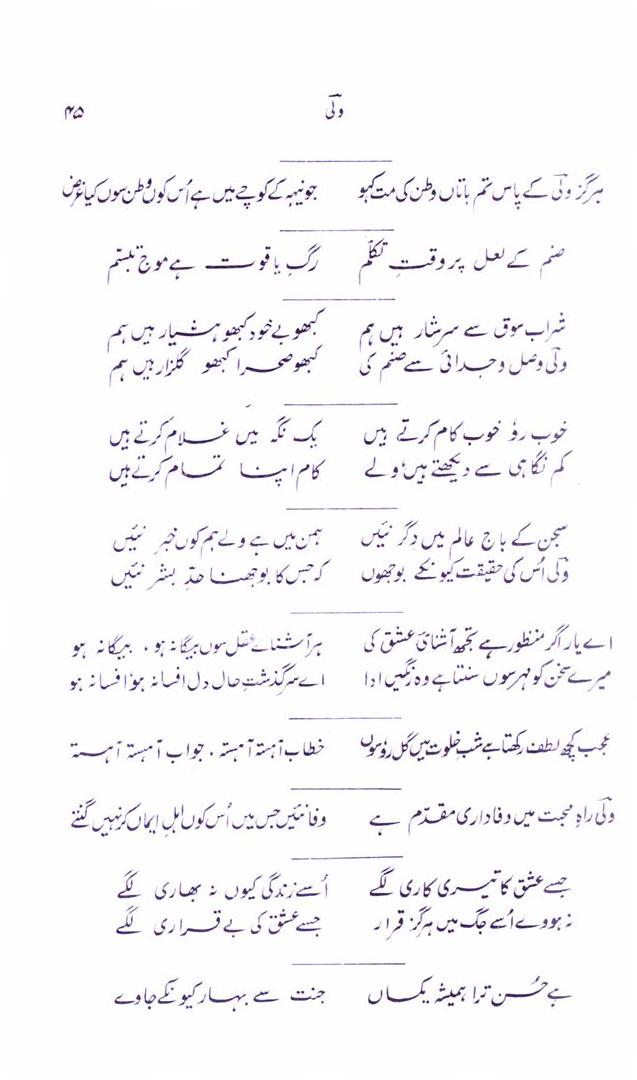 ۴۵ ولؔی
ہرگز ولؔی کے پاس تم باتاں وطن کی مت کہو جو نیہہ کے کوچے میں ہے اُس کوں وطن سوں کیا غرض
صنم کے لعل پر وقتِ تکلّم رگِ یاقوت ہے موجِ تبسّم
شرابِ شوق سے سرشار ہیں ہم کبھو بے خود کبھو ہشیار ہیں ہم
ولؔی وصل و جدائی سے صنم کی کبھو صحرا کبھو گلزار ہیں ہم
خوب رؤ خوب کام کرتے ہیں یک نگہ میں غلام کرتے ہیں
کم نگاہی سے دیکھتے ہیں ولے کام اپنا تمام کرتے ہیں
سجن کے باج عالم میں دگر نئیں ہمن میں ہے ولے ہم کوں خبر نئیں
ولؔی اُس کی حقیقت کیونکے بوجھوں کہ جس کا بوجھنا حدِّ بشر نئیں
اے یار اگر منظور ہے تجھ آشنائی عشق کی ہر آشنائے عقل سوں بیگانہ ہو، بیگانہ ہو
میرے سخن کو مہر سوں سنتا ہے وہ رنگیں ادا اے سرگذشتِ حالِ دل افسانہ ہو افسانہ ہو
عجب کچھ لطف رکھتا ہے شبِ خلوت میں گل رؤسوں خطاب آہستہ آہستہ، جواب آہستہ آہستہ
ولؔی راہِ محبت میں وفاداری مقدّم ہے وفا نئیں جس میں اُس کوں اہلِ ایماں کر نہیں گنتے
جسے عشق کا تیر کاری لگے اُسے زندگی کیوں نہ بھاری لگے
نہ ہووے اُسے جگ میں ہرگز قرار جسے عشق کی بے قراری لگے
ہے حُسن ترا ہمیشہ یکساں جنت سے بہار کیونکے جاوے